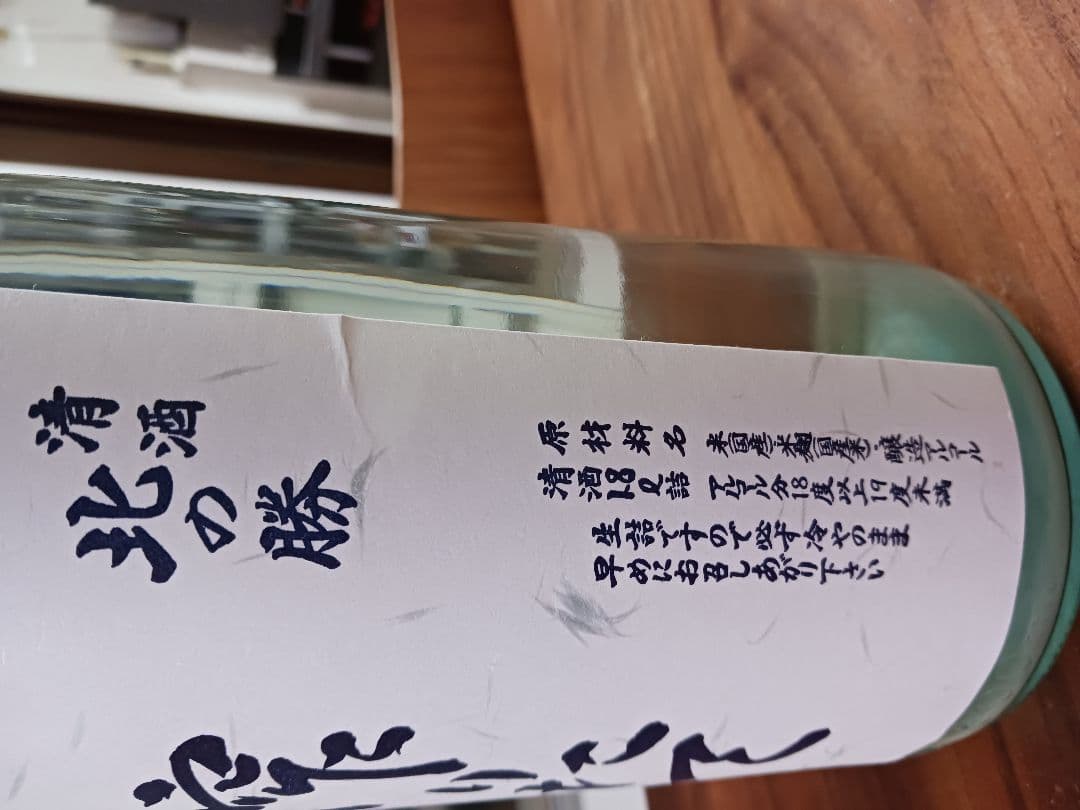 清酒
北の勝
原材料名 米国産・米麹国産米・醸造アルコール
清酒1.8ℓ詰 アルコール分18度以上19度未満
生詰ですので必ず冷やのまま
早めにお召しあがり下さい